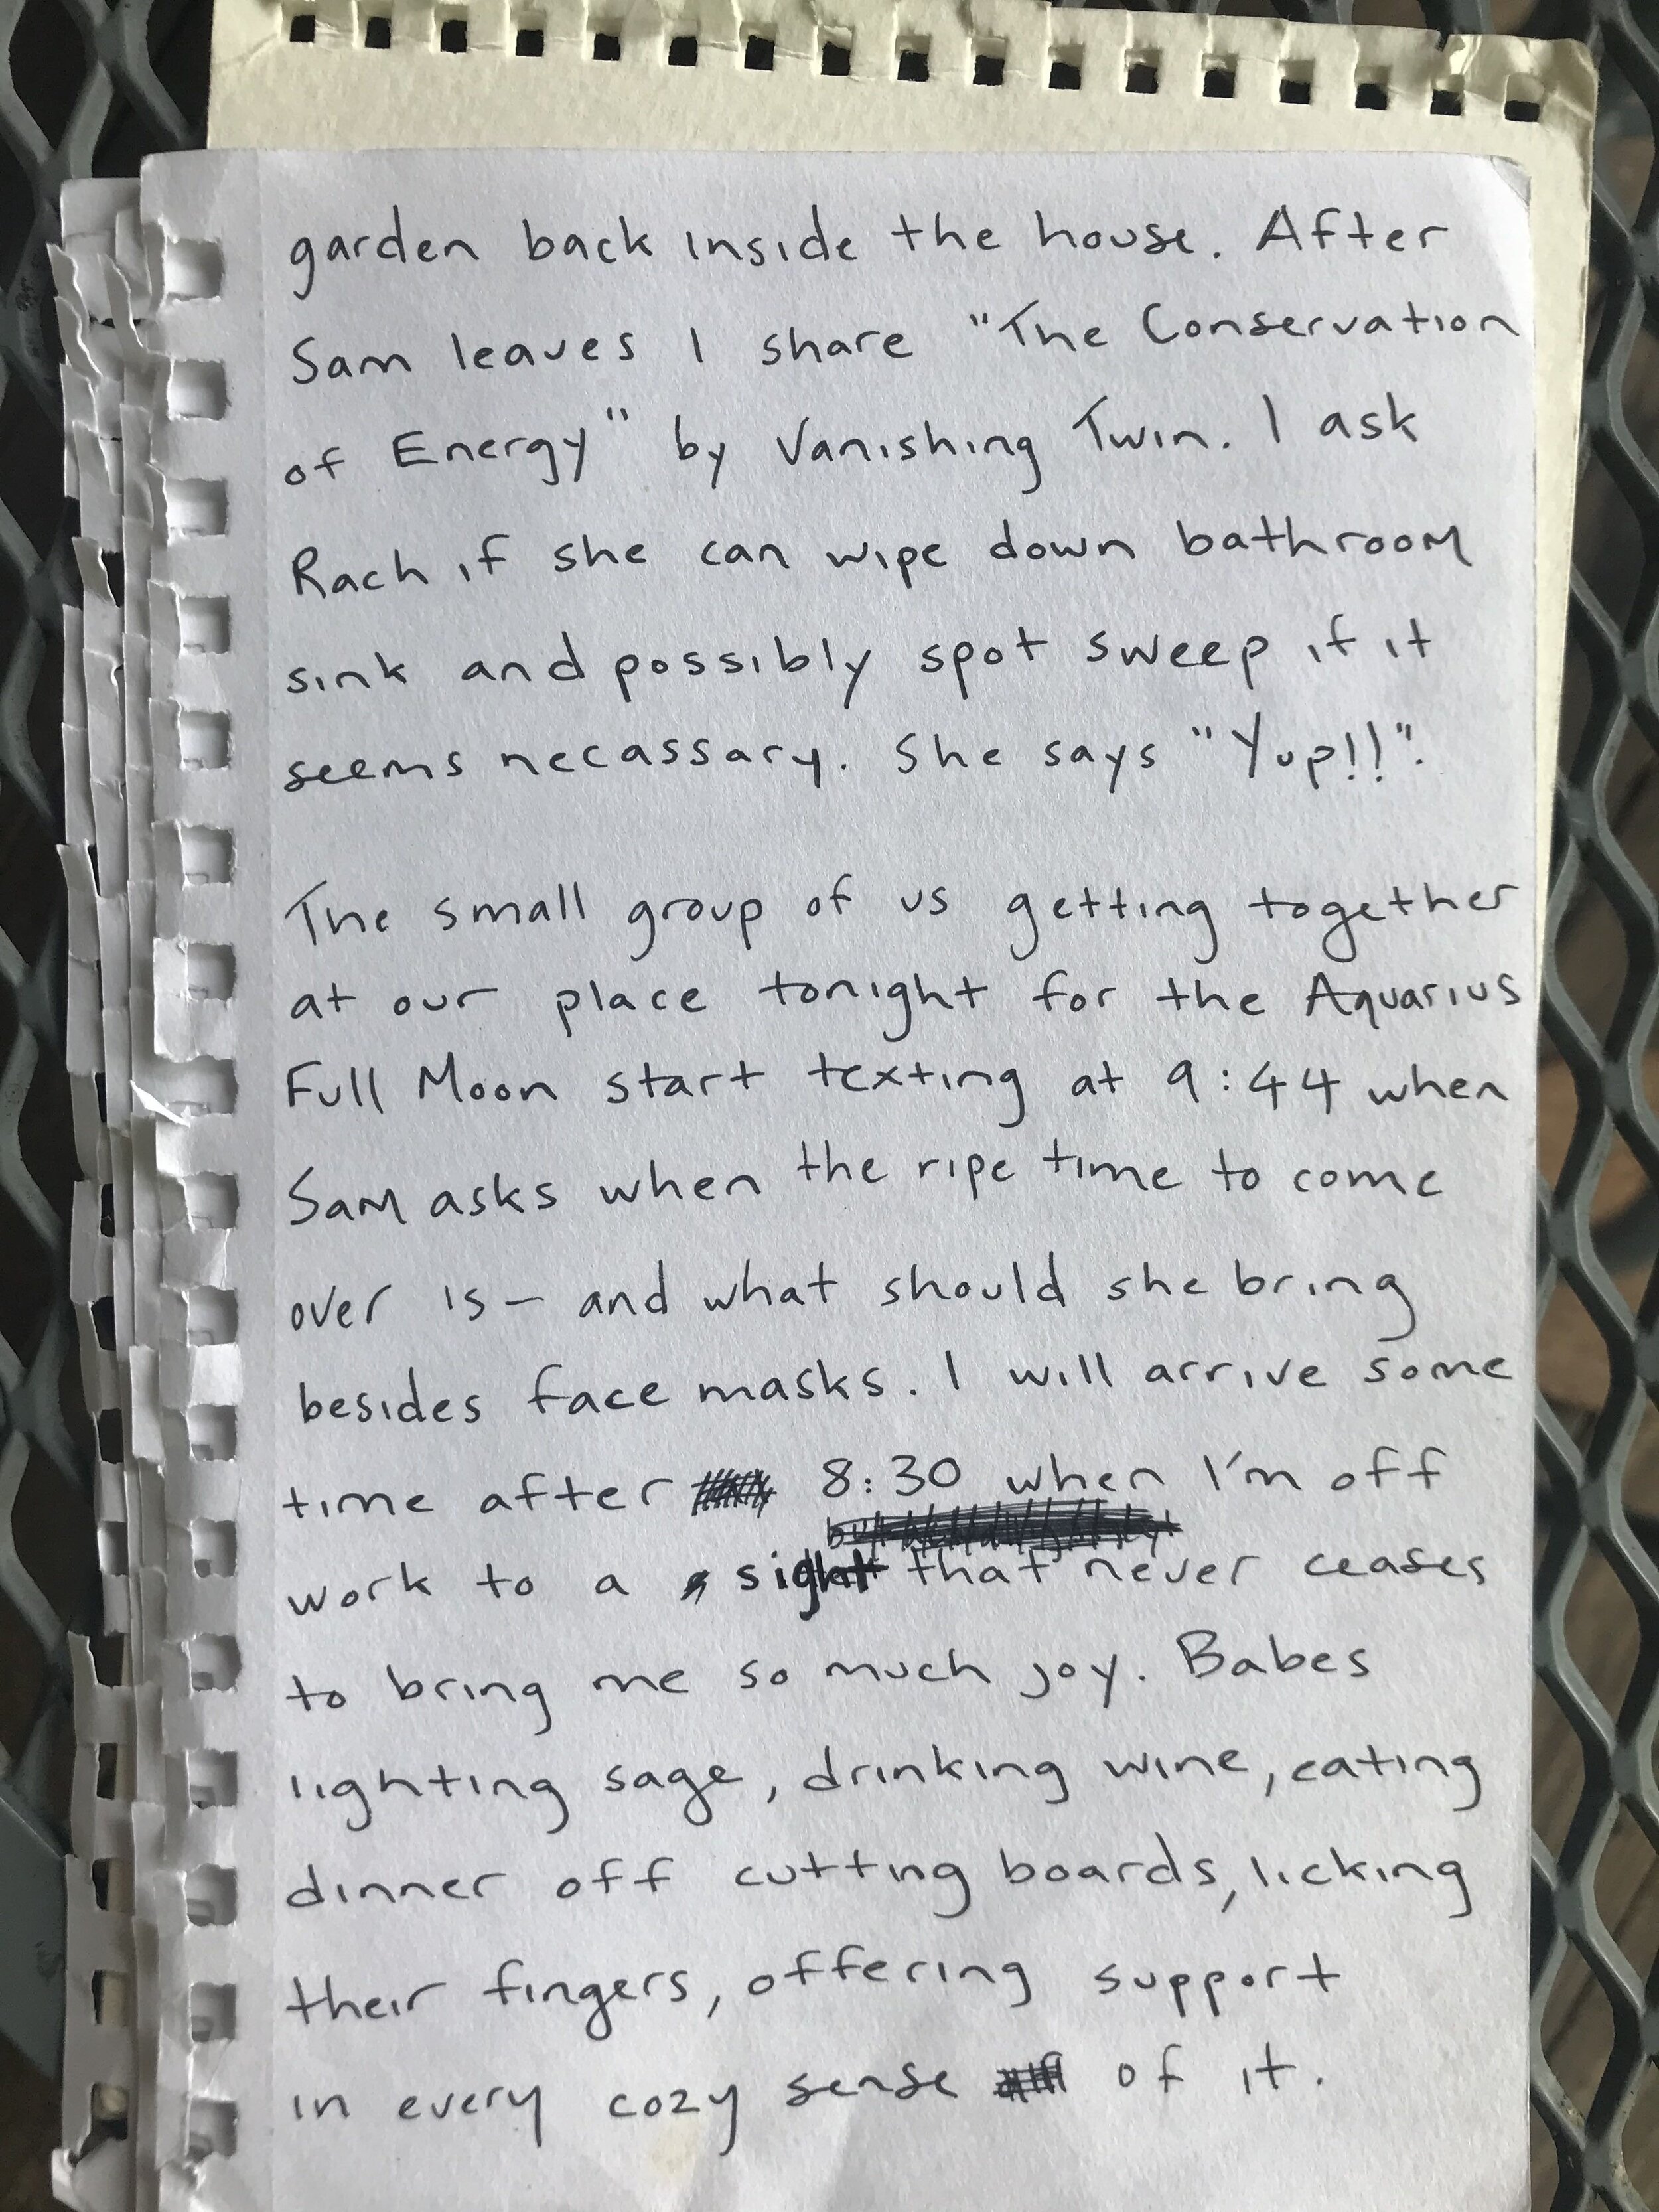 garden back inside the house. After
Sam leaves I share "The Conservation
of Energy" by Vanishing Twin. I ask
Rach if she can wipe down bathroom
sink and possibly spot sweep if it
seems necassary. She says "Yup!!".
The small group of us getting together
at our place tonight for the Aquarius
Full Moon start texting at 9:44 when
Sam asks when the ripe time to come
over is – and what should she bring
besides face masks. I will arrive some
time after 8:30 when I'm off
work to a sight that never ceases
to bring me so much joy. Babes
lighting sage, drinking wine, eating
dinner off cutting boards, licking
their fingers, offering support
in every cozy sense of it.